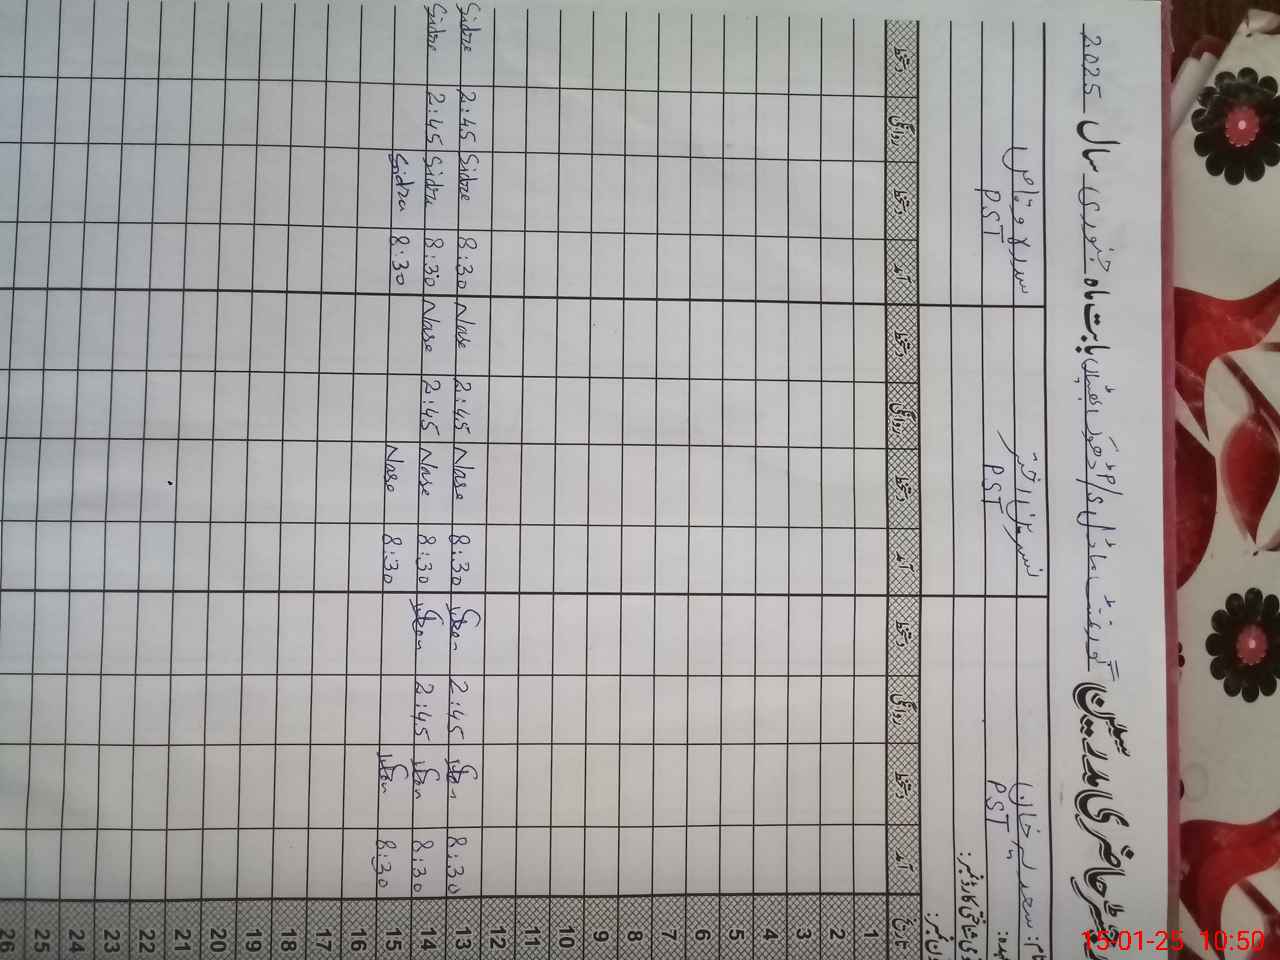 رجسٹر حاضری مدرسین گورنمنٹ ماڈل بابت ماہ جنوری سال 2025
نام: خان نسرین اختر سدرہ
عہدہ: PST PST PST
شناختی کارڈ نمبر:
تاریخ آمد دستخط روانگی دستخط آمد دستخط روانگی دستخط آمد دستخط روانگی دستخط
1
2
3
4
5
6
7
8
9
10
11
12
13 8:30 2:45 8:30 Nase 2:45 Nase 8:30 Sidze 2:45 Sidze
14 8:30 2:45 8:30 Nase 2:45 Nase 8:30 Sidze 2:45 Sidze
15 8:30 8:30 Nase 8:30 Sidza
16
17
18
19
20
21
22
23
24
25
26
15-01-25 10:50